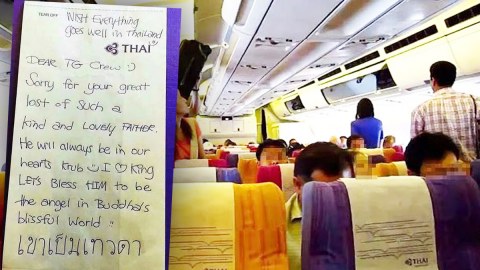 WISH Everything
goes well in Thailand
THAI
DEAR TG Crew :)
Sorry for your great
lost of such a
kind and Lovely FATHER.
He will always be in our
hearts krub I ♡ King
LET'S Bless HIM to be
the angel in Buddha's
blissful world :
เขาเป็นเทวดา
THAI